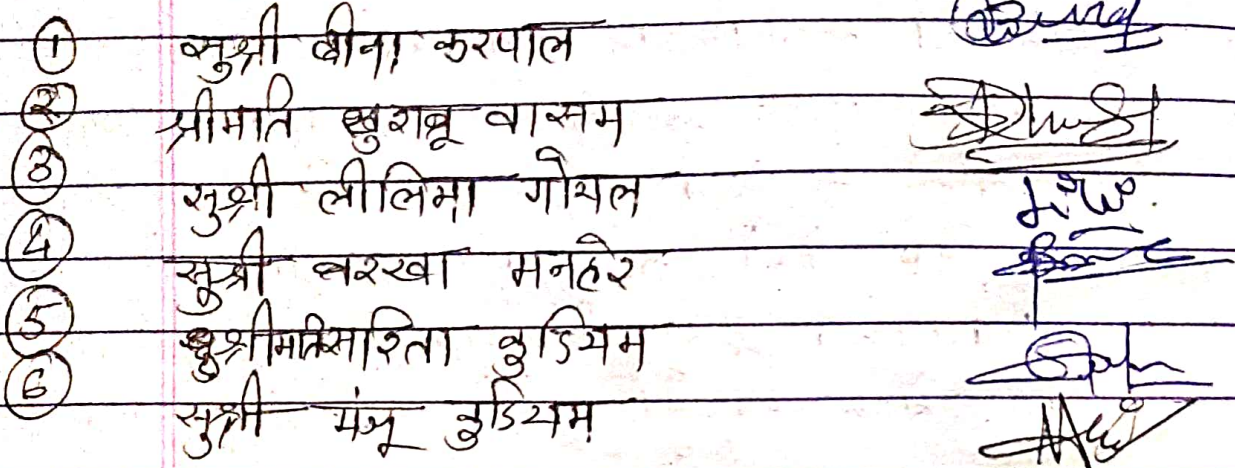 ① सुश्री बीना करपाल
② श्रीमति खुशबू वासम
③ सुश्री लीलिमा गोयल
④ सुश्री बरखा मनहरे
⑤ श्रीमति सरिता कुडियम
⑥ सुश्री मंजू कुडियम